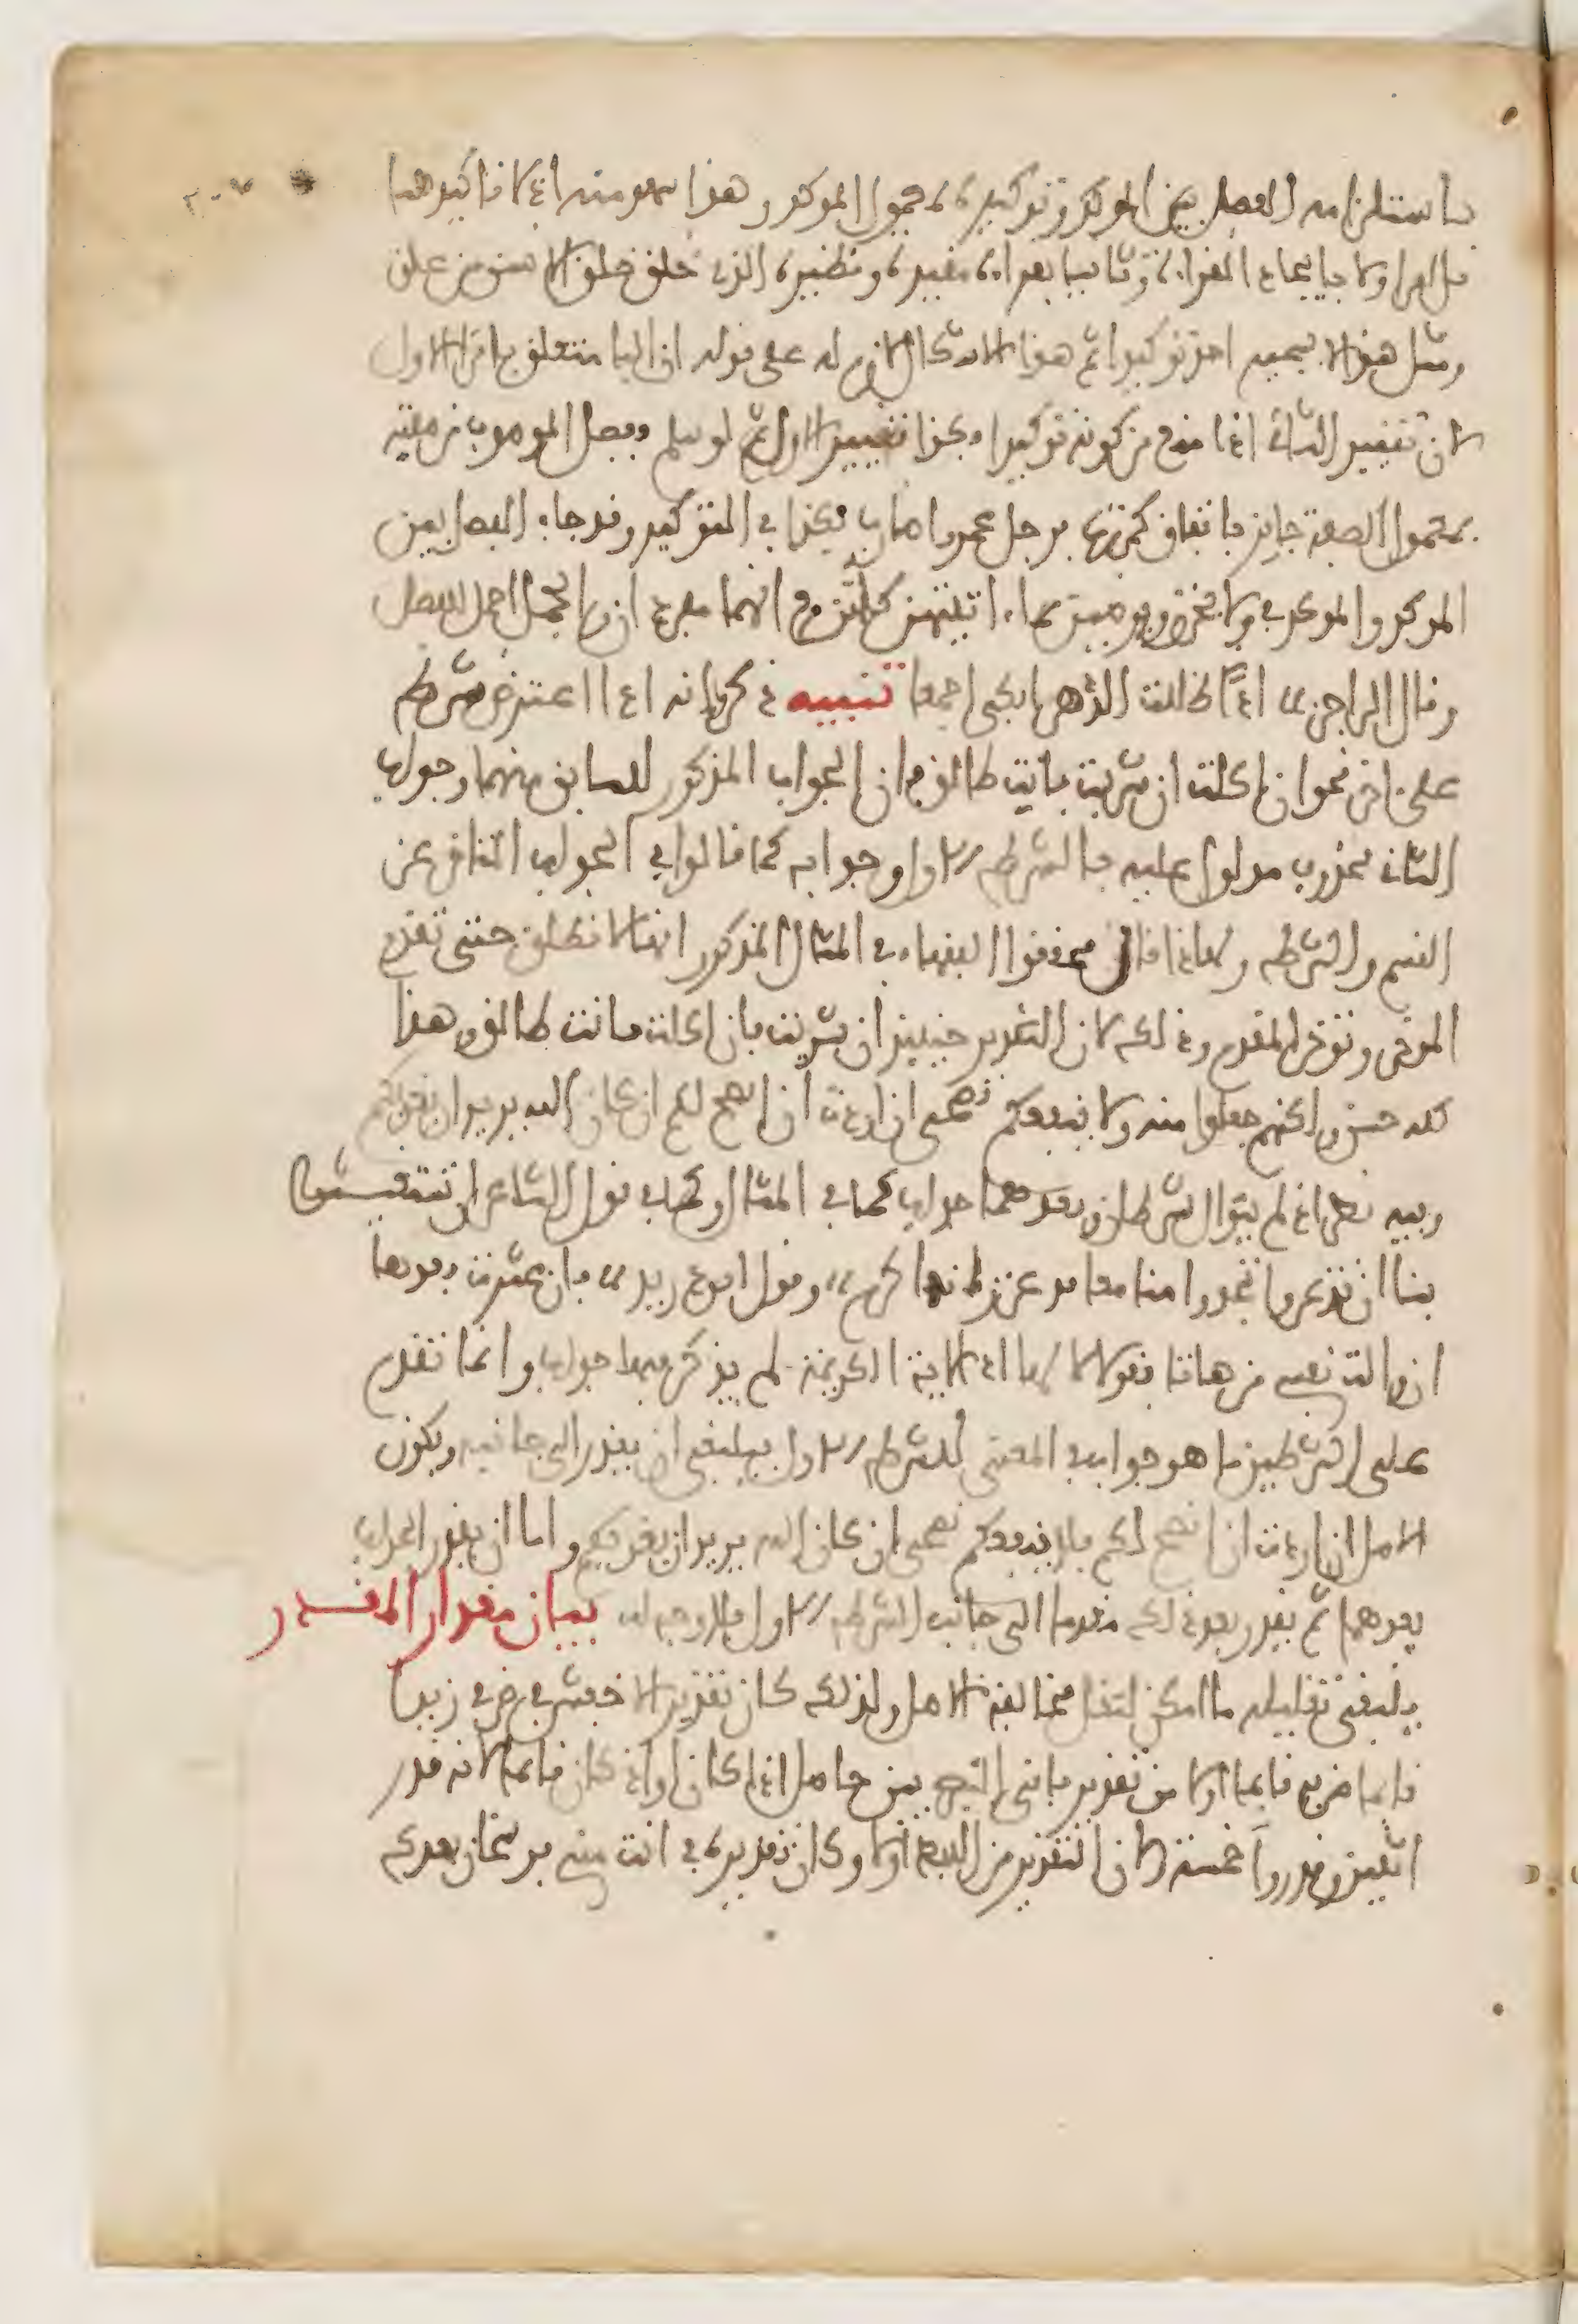 باستلزامه الفصل بين المؤكد وتوكيده بمعمول المؤكد وهذا سهو منه اذ لا تاكيد هنا
بل امر اولا بايجاد القراءة وثانيا بقراءة مقيدة ونظيره الذي خلق خلق الانسن من علق
ومثل هذا لا يسميه احد توكيدا ثم هذا الاشكال لازم له على قوله ان الباء متعلق باقرا الاول
لان تقييد الثاني اذا منع من كونه توكيدا فكذا تقييد الاول ثم لو سلم ففصل الموصوف من صفته
بمعمول الصفة جايز باتفاق كمررت برجل عمرا ضارب فكذا في التوكيد وقد جاء الفصل بين
الموكد والموكد في ولا يحزن ويرضين بما ءاتيتهن كلهن مع انهما مفرد ان والجمل احمل للفصل
وقال الراجز اذا ظللت الدهر ابكي اجمعا تنبيه ذكروا انه اذا اعترض شرط
على اخر نحو ان اكلت ان شربت فانت طالق فان الجواب المذكور للسابق منهما وجواب
الثاني محذوف مدلول عليه بالشرط الاول وجوابه كما قالوا في الجواب المتاخر عن
القسم والشرط ولهاذا قال محققوا الفقهاء في المثال المذكور انها لا تطلق حتى تقدم
المؤخر وتؤخر المقدم وذلك لان التقدير حينيذ ان شربت فان اكلت فانت طالق وهذا
كله حسن ولكنهم جعلوا منه ولا ينفعكم نصحي ان اردت ان انصح لكم ان كان الله يريد ان يغويكم
وفيه نظر اذ لم يتوال شرطان وبعدهما جواب كما في المثال وكما في قول الشاعر ان تستغيثوا
بنا ان تذعروا تجدوا منا معاقد عز زانها كرم وقول ابن دريد فان عثرت بعدها
ان والت نفسي من هاتا فقولا لا لعا اذ الاية الكريمة لم يذكر فيها جواب وانما تقدم
على الشرطين ما هو جواب في المعنى للشرط الاول فينبغي ان يقدر الى جانبه ويكون
الاصل ان اردت ان انصح لكم فلا ينفعكم نصحي ان كان الله يريد ان يغويكم واما ان يقدر الجواب
بعدهما ثم يقدر بعد ذلك مقدما الى جانب الشرط الاول فلا وجه له بيان مقدار المقدر
ينبغي تقليله ما امكن لتقل مخالفة الاصل ولذلك كان تقدير الاخفش في ضربي زيدا
قايما ضربه قايما اولى من تقدير باقي البصريين حاصل اذا كان او اذ كان قايما لانه قدر
اثنين وقدروا خمسة ولان التقدير من اللفظ اولى وكان تقديره في انت مني فرسخان بعدك